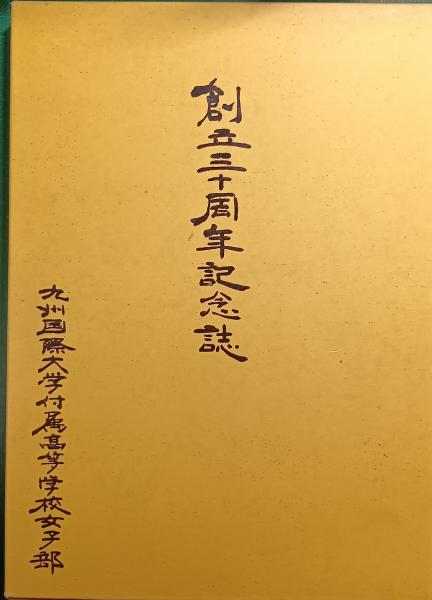 創立三十周年記念誌
九州国際大学付属高等学校女子部